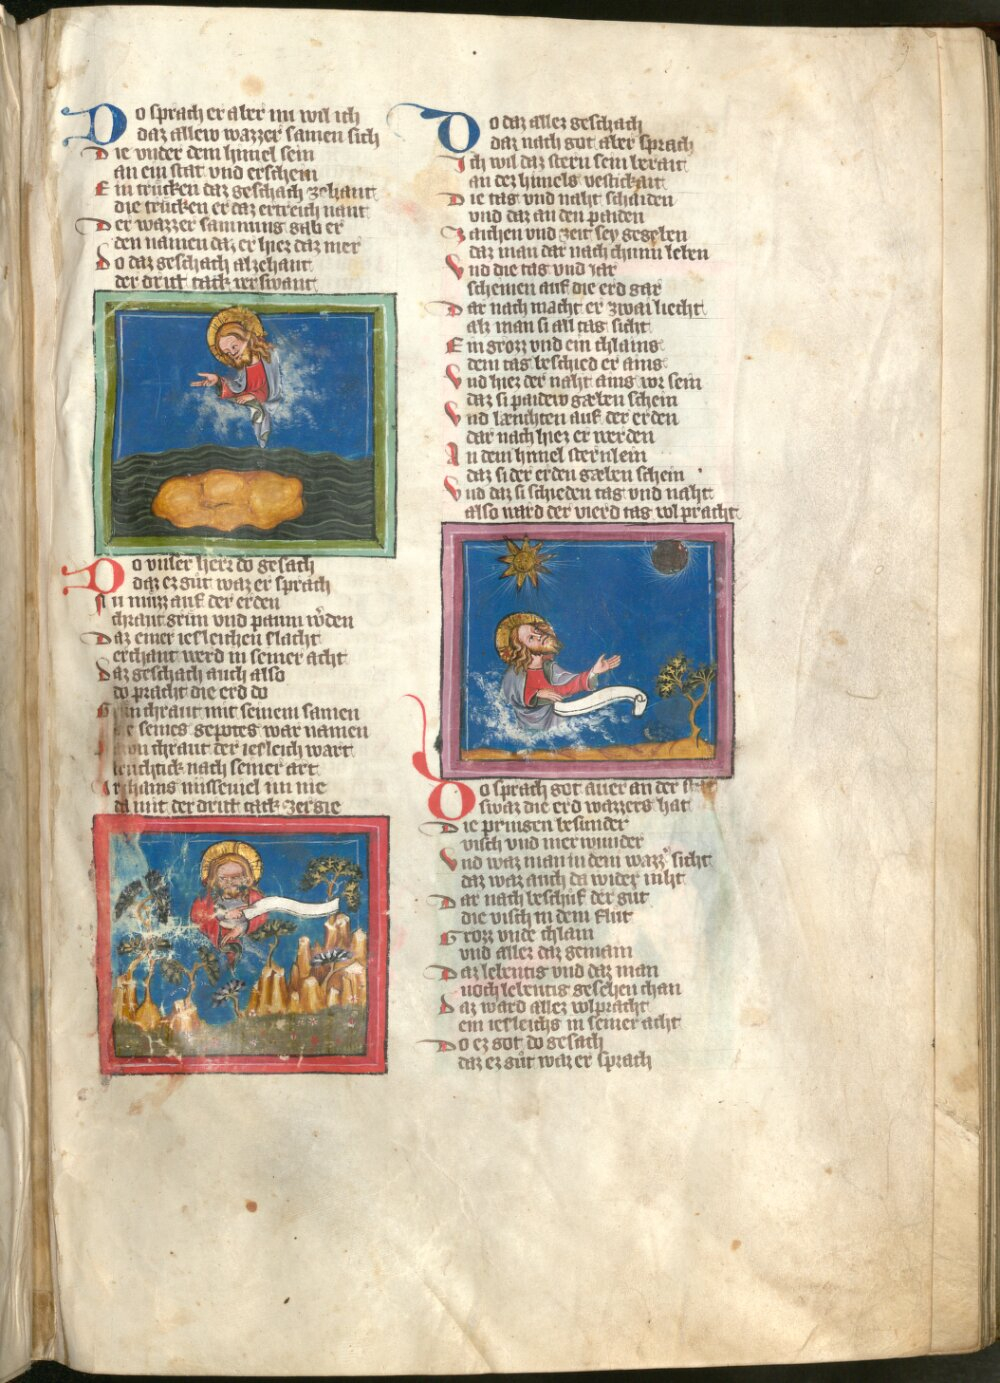 Do sprach er aber nu wil ich
daz allew wazzer samen sich
Die vnder dem himel sein
an ein stat vnd erschein
Ein trůcken daz geschach zehant
die trůcken er daz ertreich nant
Der wazzer samnung gab er
den namen daz er hiez daz mer
Do daz geschach alzehant
der dritt tack verswant
Do vnser herr do gesach
daz ez gůt waz er sprach
Nu můzz auf der erden
chraut grůn vnd paum w͛den
Daz einer iesleichen slacht
erchant werd in seiner acht
Daz geschach auch also
do pracht die erd do
Grůn chraut mit seinem samen
seines gepotes war namen
chraut der iesleich wart
leuchtick nach seiner art
misseuiel nu nie
da mit der dritt tack zergie
Do daz allez geschach
daz nach got aber sprach
Ich wil daz stern sein berait
an dez himels vestickait
Die tag vnd naht schaiden
vnd daz an den paiden
Zaichen vnd zeit sey gegeben
daz man dar nach chunn leben
Vnd die tag vnd iar
scheinen auf die erd gar
Dar nach macht er zwai liecht
alz man si all tag sicht
Ein grozz vnd ein chlains
dem tag beschied er ains
Vnd hiez der naht ains vor sein
daz si paidew gæben schein
Vnd læuchten auf der erden
dar nach hiez er werden
An dem himel sternlein
daz si der erden gæben schein
Vnd daz si schieden tag vnd naht
also ward der vierd tag volpracht
Do sprach got auer an der stat
swaz die erd wazzers hat
Die pringen besunder
visch vnd mer wunder
Vnd waz man in dem wazz͛ sicht
daz waz auch da wider niht
Dar nach beschůf der gůt
die visch in dem flůt
Grozz vnde chlain
vnd allez daz gemain
Daz lebentig vnd daz man
noch lebentig gesehen chan
Daz ward allez volpracht
ein iesleichs in seiner acht
Do ez got do gesach
daz ez gůt waz er sprach